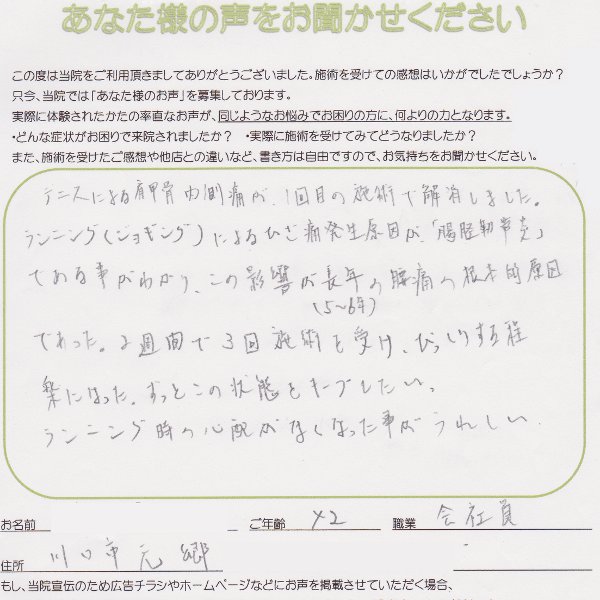 あなた様の声をお聞かせください
この度は当院をご利用頂きましてありがとうございました。施術を受けての感想はいかがでしたでしょうか？
只今、当院では「あなた様のお声」を募集しております。
実際に体験されたかたの率直なお声が、同じようなお悩みでお困りの方に、何よりの力となります。
・どんな症状がお困りで来院されましたか？　・実際に施術を受けてみてどうなりましたか？
また、施術を受けたご感想や他店との違いなど、書き方は自由ですので、お気持ちをお聞かせください。
テニスによる肩甲骨内側痛が、1回目の施術で解消しました。
ランニング(ジョギング)によるひざ痛発生原因が、「腸脛靭帯炎」
である事がわかり、この影響が長年の腰痛の根本的原因
(5～6年)
であった。2週間で3回施術を受け、びっくりする程
楽になった。ずっとこの状態をキープしたい。
ランニング時の心配がなくなった事がうれしい。
お名前
ご年齢 42 職業 会社員
住所 川口市元郷
もし、当院宣伝のため広告チラシやホームページなどにお声を掲載させていただく場合、